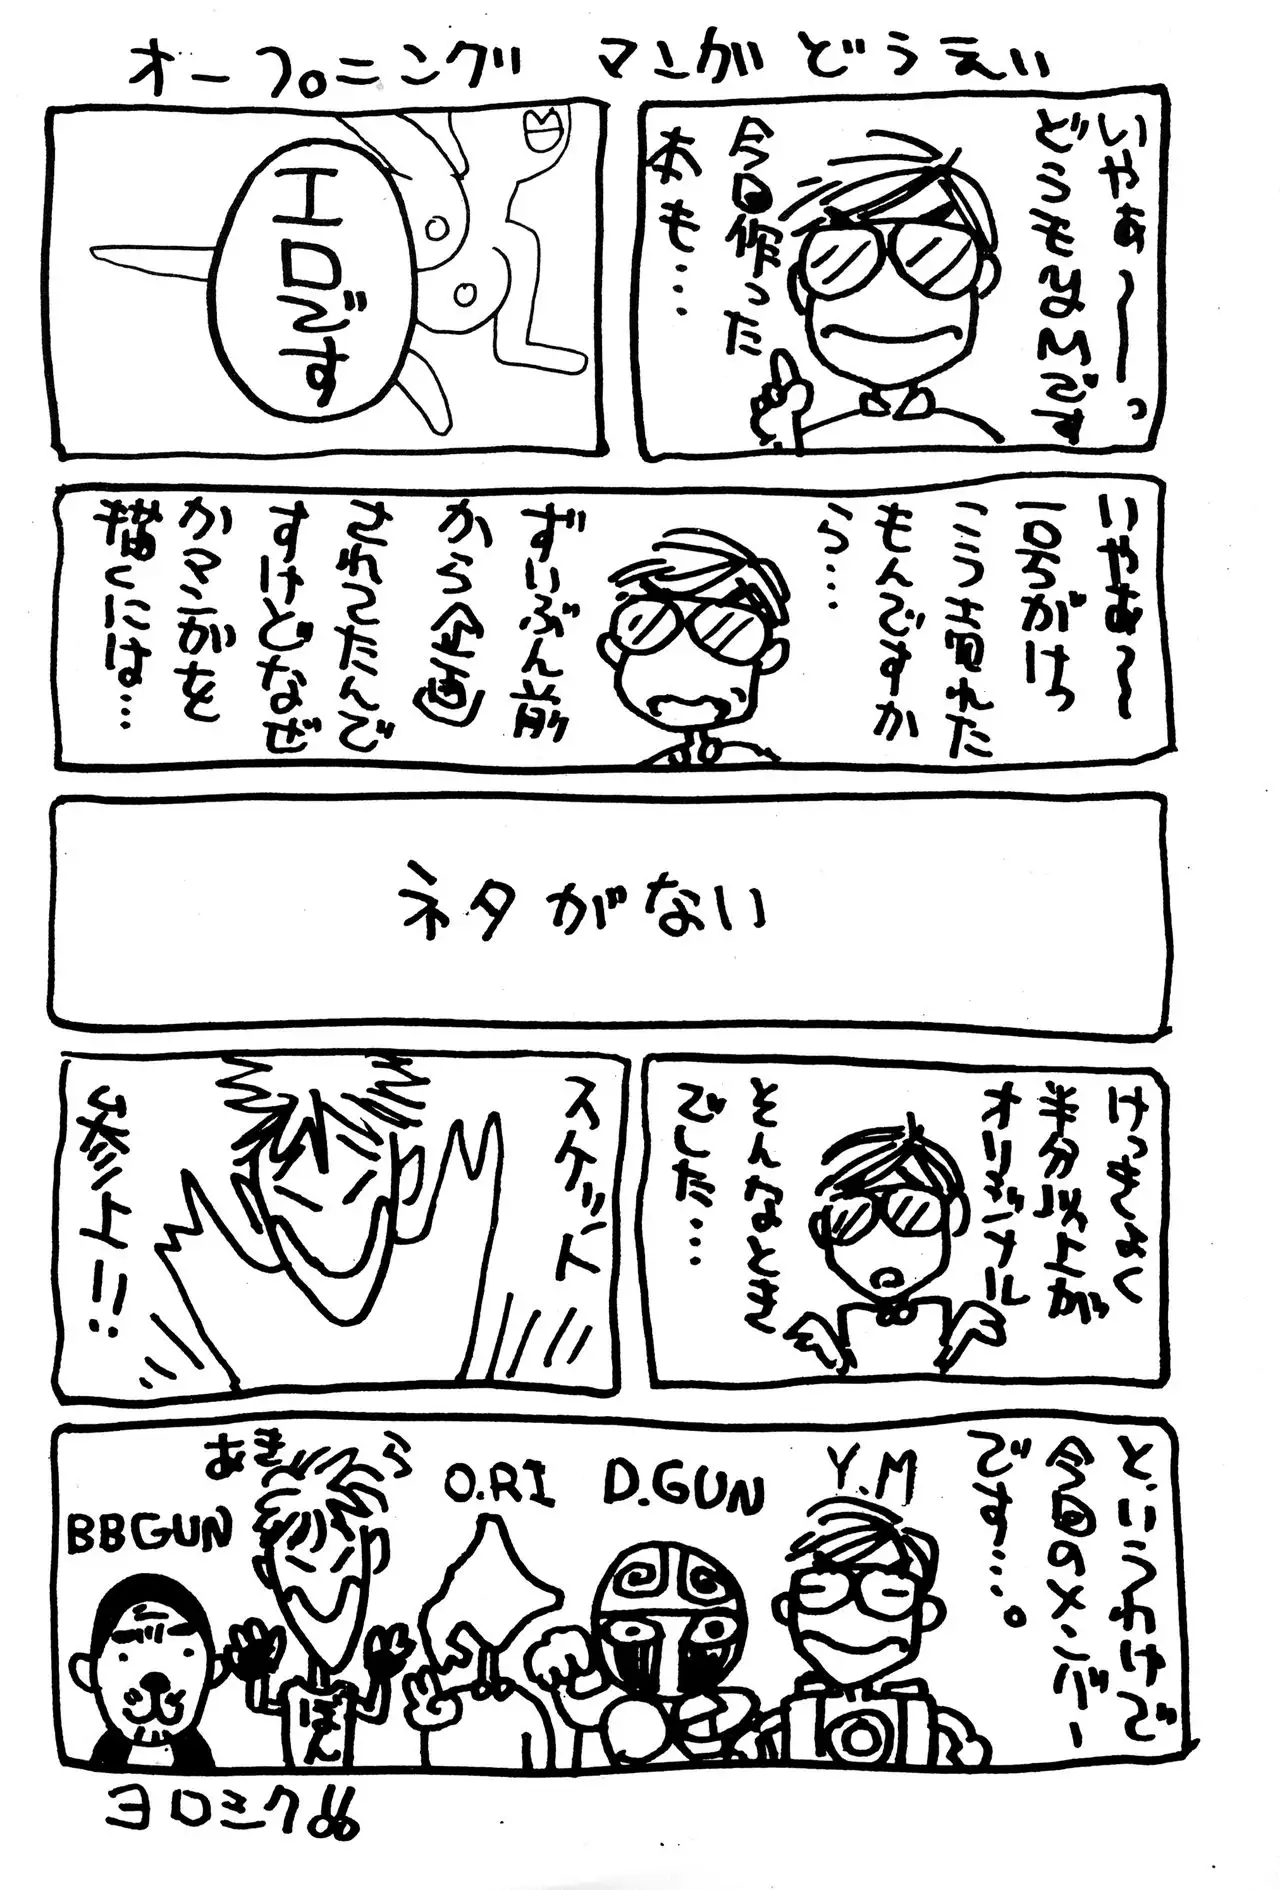 オープニング マンガ どうえい
いやぁ〜〜っ
どうもY.Mです
今回作った
本も…
エロです
いやぁ〜〜
一日らがけ
こう
もんですか
ら…
ずいぶん前
から企画
されてたんで
すけどなぜ
かマンガを
描くには…
ネタがない
けっきょく
半分以上が
オリジナル
そんなとき
でした…
スケット
参上!!
というわけで
今回のメンバー
です…。
Y.M
D.GUN
O.RI
あきら
ぽん
BBGUN
ヨロミク!!